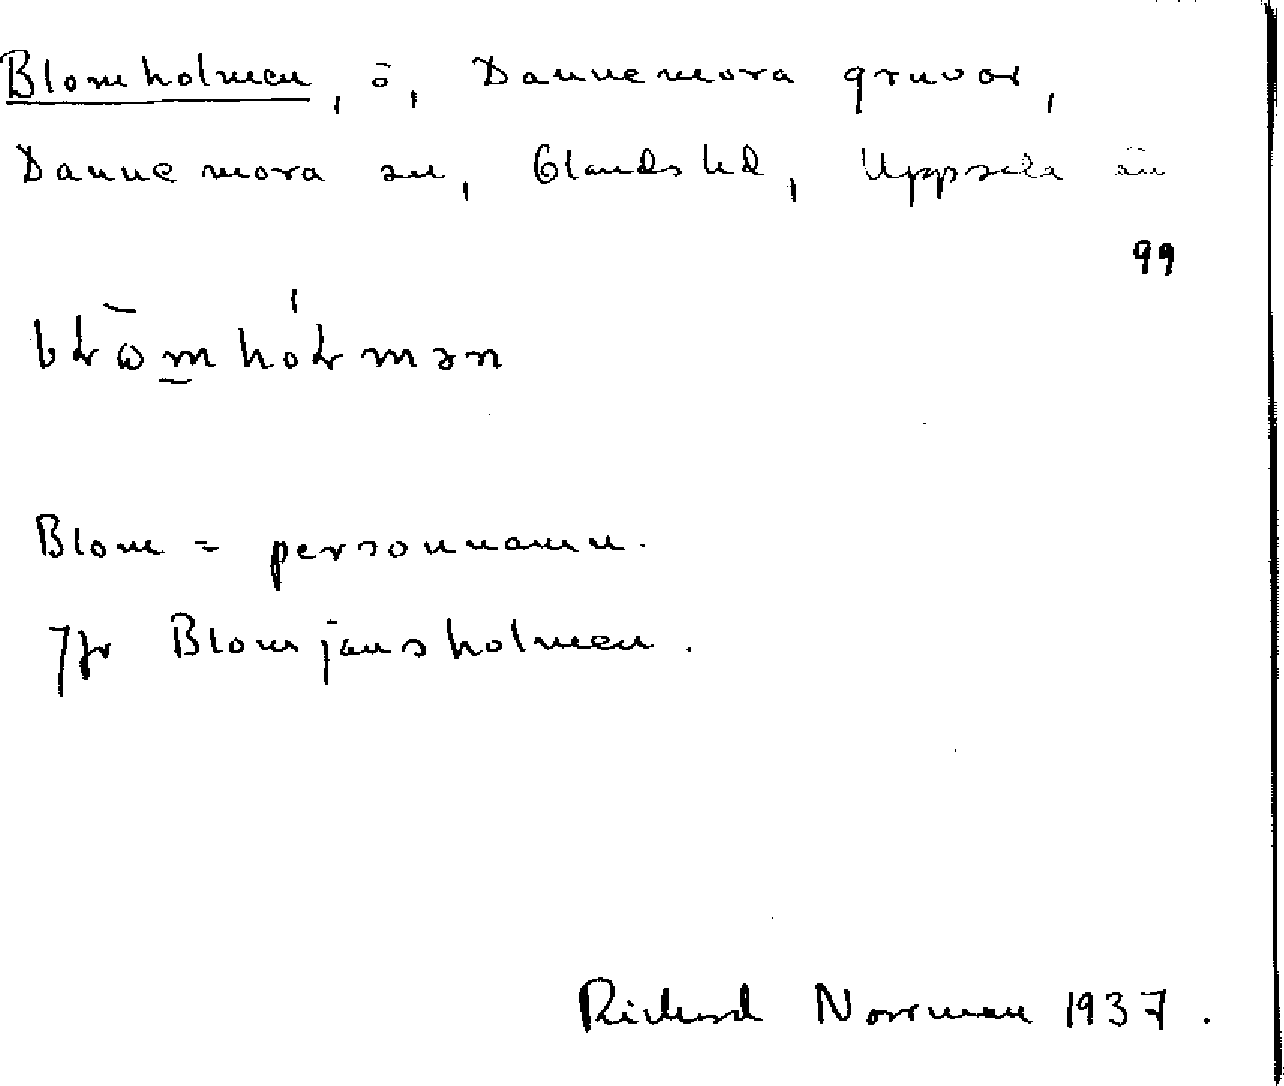 Blomholmen, ö, Dannemora gruvor,
Dannemora sn, Olands hd, Uppsala län
99
Blom = personnamn.
Jfr Blomjansholmen.
Richard Norrman 1937.